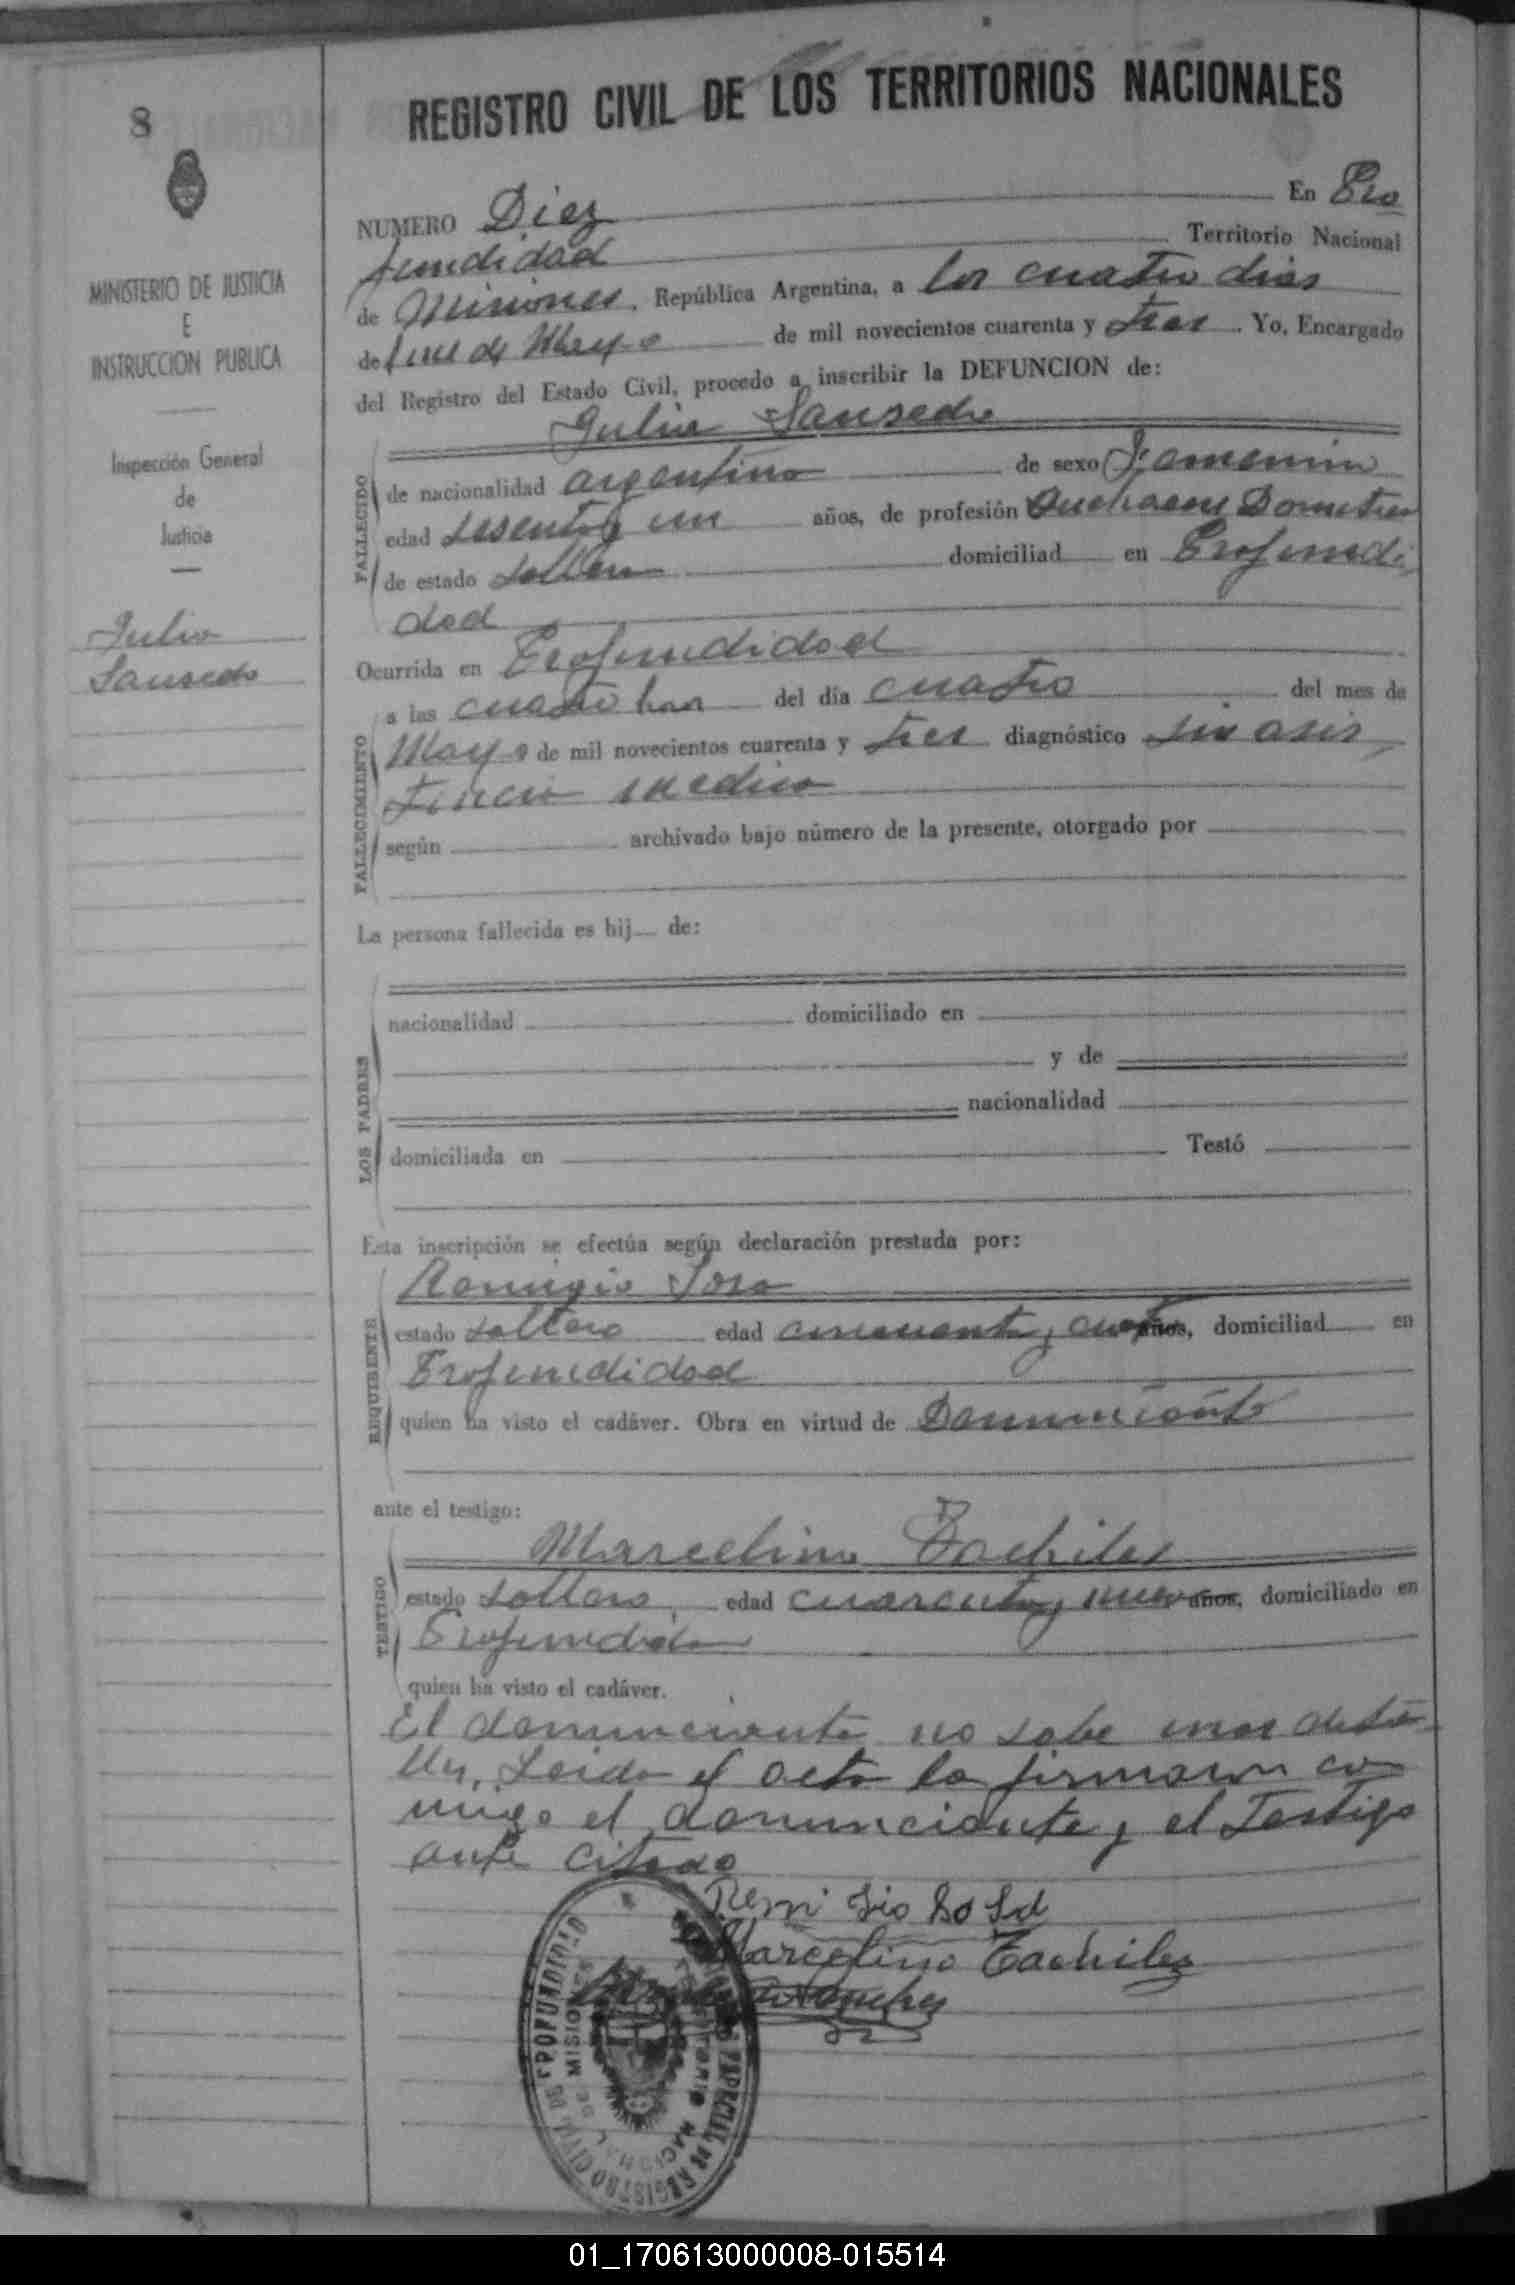 8
MINISTERIO DE JUSTICIA
E
INSTRUCCION PUBLICA
Inspección General
de
Justicia
Julia
Sausedo
REGISTRO CIVIL DE LOS TERRITORIOS NACIONALES
NUMERO Diez En Pro
fundidad Territorio Nacional
de Misiones, República Argentina, a los cuatro dias
del mes de Mayo de mil novecientos cuarenta y tres. Yo, Encargado
del Registro del Estado Civil, procedo a inscribir la DEFUNCION de:
Julia Sausedo
FALLECIDO
de nacionalidad argentina de sexo Femenino
edad sesenta y un años, de profesión Quehacer Domestico
de estado soltera domiciliad en Profundi
dad
Ocurrida en Profundidad
FALLECIMIENTO
a las cuatro horas del día cuatro del mes de
Mayo de mil novecientos cuarenta y tres diagnóstico sin asis
tencia medica
según archivado bajo número de la presente, otorgado por
La persona fallecida es hij de:
LOS PADRES
nacionalidad domiciliado en
y de
nacionalidad
domiciliada en Testó
Esta inscripción se efectúa según declaración prestada por:
REQUIRENTE
Remigio Sosa
estado soltero edad cincuenta y cuatro años, domiciliad en
Profundidad
quien ha visto el cadáver. Obra en virtud de Denunciante
ante el testigo:
TESTIGO
Marcelino Tachiles
estado soltero, edad cuarenta y nueve años, domiciliado en
Profundidad
quien ha visto el cadáver.
El denunciante no sabe mas deta
lles, Leida el acta la firmaron co
migo el denunciante y el Testigo
ante citado
Remi Sio So Sd
Marcelino Tachiles
REGISTRO CIVIL DE PROFUNDIDAD
TERRITORIO NACIONAL DE MISIONES
01_170613000008-015514